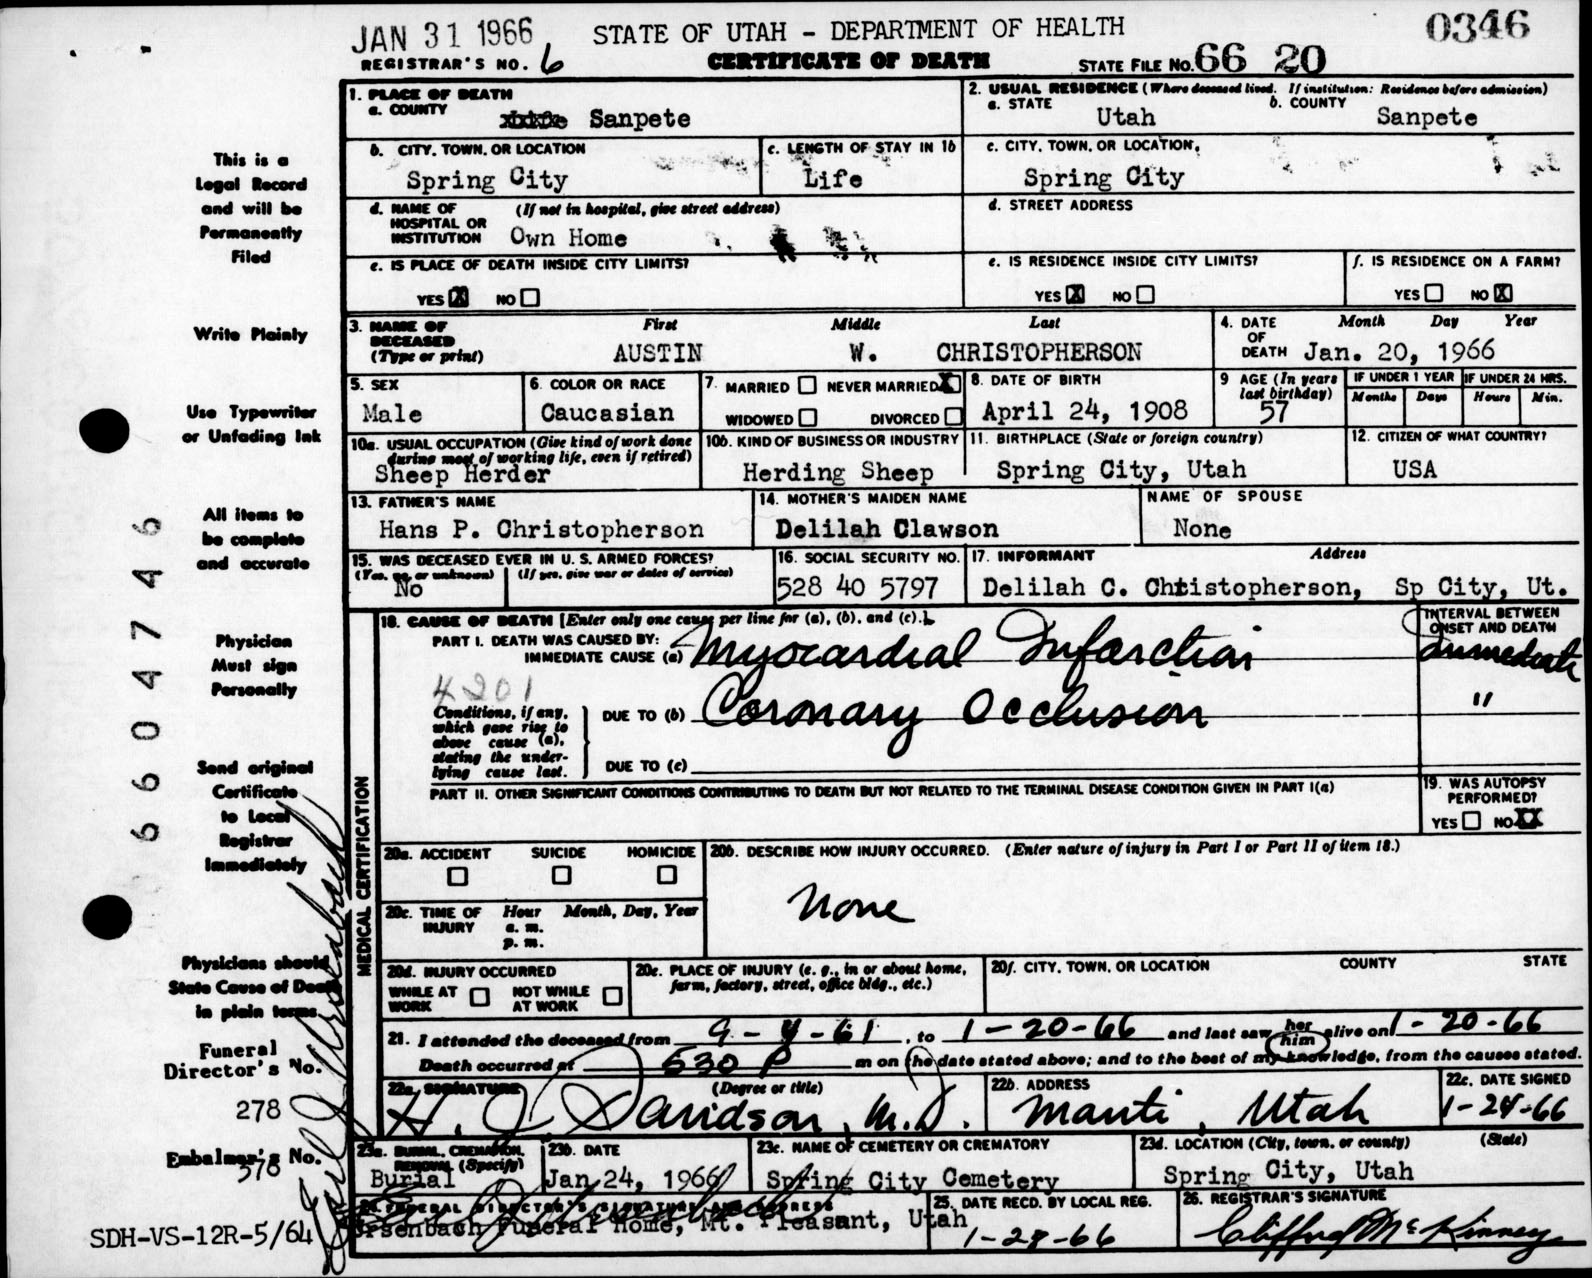 JAN 31 1966 STATE OF UTAH - DEPARTMENT OF HEALTH 0346
REGISTRAR'S NO. 6 CERTIFICATE OF DEATH STATE FILE NO. 66 20
1. PLACE OF DEATH
a. COUNTY Sanpete
2. USUAL RESIDENCE (Where deceased lived. If institution: Residence before admission)
a. STATE Utah b. COUNTY Sanpete
b. CITY, TOWN, OR LOCATION Spring City
c. LENGTH OF STAY IN 1b Life
c. CITY, TOWN, OR LOCATION, Spring City
d. NAME OF HOSPITAL OR INSTITUTION (If not in hospital, give street address) Own Home
d. STREET ADDRESS
e. IS PLACE OF DEATH INSIDE CITY LIMITS?
YES X NO
e. IS RESIDENCE INSIDE CITY LIMITS?
YES X NO
f. IS RESIDENCE ON A FARM?
YES NO X
3. NAME OF DECEASED (Type or print) First Middle Last
AUSTIN W. CHRISTOPHERSON
4. DATE OF DEATH Month Day Year
Jan. 20, 1966
5. SEX Male
6. COLOR OR RACE Caucasian
7. MARRIED NEVER MARRIED X
WIDOWED DIVORCED
8. DATE OF BIRTH April 24, 1908
9 AGE (In years last birthday) 57
IF UNDER 1 YEAR Months Days
IF UNDER 24 HRS. Hours Min.
10a. USUAL OCCUPATION (Give kind of work done during most of working life, even if retired)
Sheep Herder
10b. KIND OF BUSINESS OR INDUSTRY
Herding Sheep
11. BIRTHPLACE (State or foreign country)
Spring City, Utah
12. CITIZEN OF WHAT COUNTRY?
USA
13. FATHER'S NAME
Hans P. Christopherson
14. MOTHER'S MAIDEN NAME
Delilah Clawson
NAME OF SPOUSE
None
15. WAS DECEASED EVER IN U. S. ARMED FORCES?
(Yes, no, or unknown) (If yes, give war or dates of service)
No
16. SOCIAL SECURITY NO.
528 40 5797
17. INFORMANT Address
Delilah C. Christopherson, Sp City, Ut.
18. CAUSE OF DEATH [Enter only one cause per line for (a), (b), and (c).]
INTERVAL BETWEEN ONSET AND DEATH
PART I. DEATH WAS CAUSED BY:
IMMEDIATE CAUSE (a) Myocardial Infarction Immediate
4201
Conditions, if any, which gave rise to above cause (a), stating the underlying cause last.
DUE TO (b) Coronary Occlusion "
DUE TO (c)
PART II. OTHER SIGNIFICANT CONDITIONS CONTRIBUTING TO DEATH BUT NOT RELATED TO THE TERMINAL DISEASE CONDITION GIVEN IN PART I(a)
19. WAS AUTOPSY PERFORMED?
YES NO XX
MEDICAL CERTIFICATION
20a. ACCIDENT SUICIDE HOMICIDE
20b. DESCRIBE HOW INJURY OCCURRED. (Enter nature of injury in Part I or Part II of item 18.)
None
20c. TIME OF INJURY Hour Month, Day, Year
a. m.
p. m.
20d. INJURY OCCURRED
WHILE AT WORK NOT WHILE AT WORK
20e. PLACE OF INJURY (e. g., in or about home, farm, factory, street, office bldg., etc.)
20f. CITY, TOWN, OR LOCATION COUNTY STATE
21. I attended the deceased from 9-4-61, to 1-20-66 and last saw her him alive on 1-20-66
Death occurred at 530 P m on the date stated above; and to the best of my knowledge, from the causes stated.
22a. SIGNATURE (Degree or title)
H. J. Davidson, M.D.
22b. ADDRESS
Manti, Utah
22c. DATE SIGNED
1-24-66
23a. BURIAL, CREMATION, REMOVAL (Specify)
Burial
23b. DATE
Jan 24, 1966
23c. NAME OF CEMETERY OR CREMATORY
Spring City Cemetery
23d. LOCATION (City, town, or county) (State)
Spring City, Utah
24. FUNERAL DIRECTOR'S SIGNATURE ADDRESS
Ursenbach Funeral Home, Mt. Pleasant, Utah
25. DATE RECD. BY LOCAL REG.
1-28-66
26. REGISTRAR'S SIGNATURE
Clifford McKinney
This is a
Legal Record
and will be
Permanently
Filed
Write Plainly
Use Typewriter
or Unfading Ink
All items to
be complete
and accurate
Physician
Must sign
Personally
Send original
Certificate
to Local
Registrar
Immediately
Physicians should
State Cause of Death
in plain terms.
Funeral
Director's No.
278
Embalmer's No.
378
SDH-VS-12R-5/64
660474 6